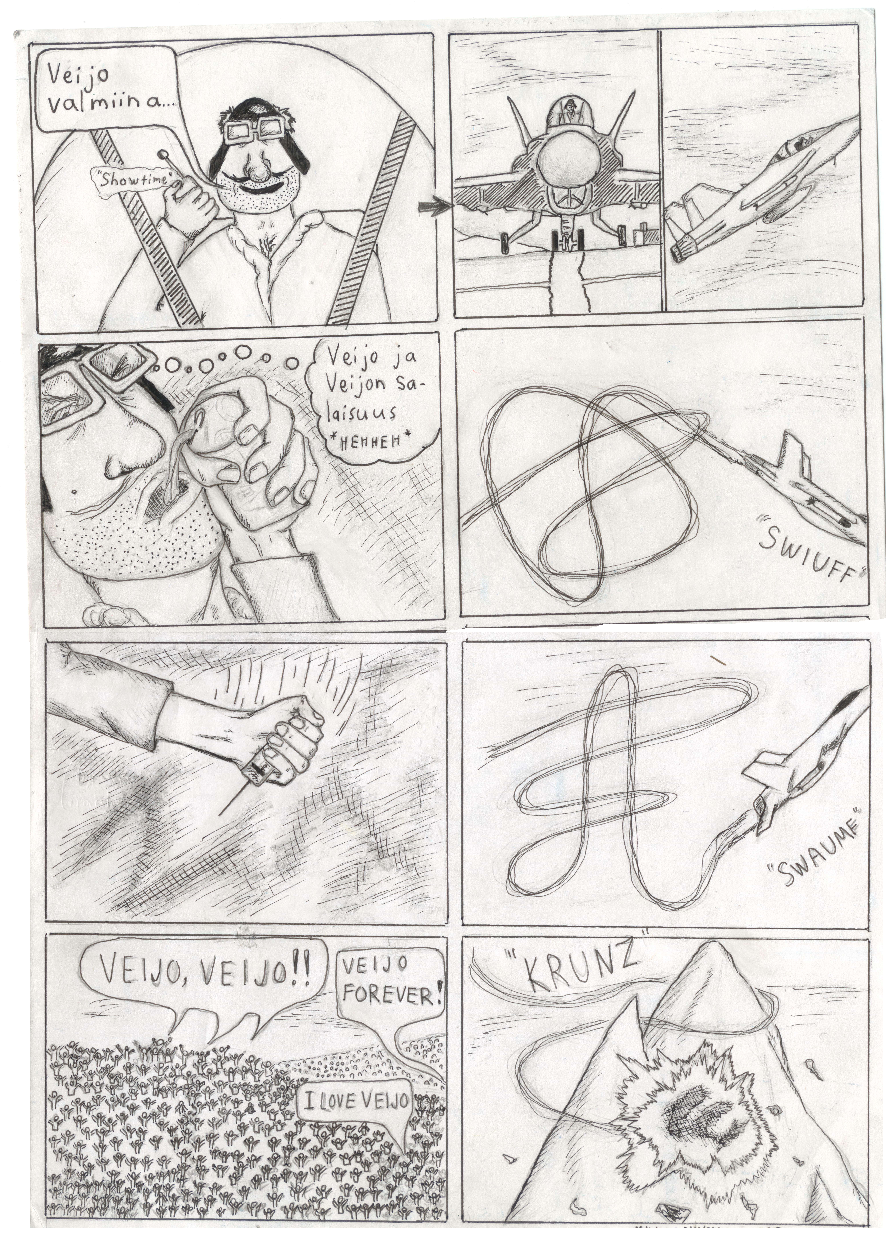 Veijo
valmiina...
"Showtime"
Veijo ja
Veijon sa-
laisuus
*HEHHEH*
"SWIUFF"
"SWAUME"
VEIJO, VEIJO!!
VEIJO
FOREVER!
I LOVE VEIJO
"KRUNZ"